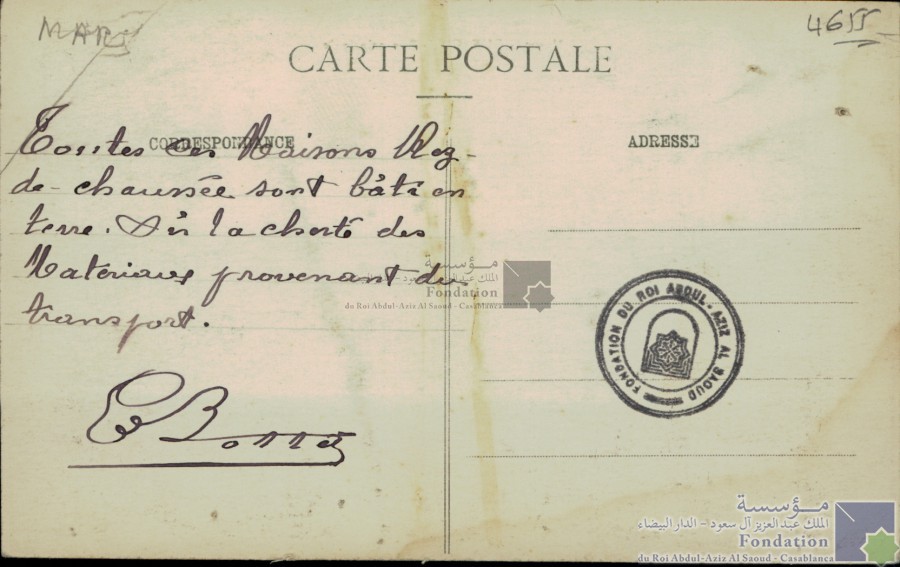 MAR
4655
CARTE POSTALE
CORRESPONDANCE
ADRESSE
Toutes ces Maisons Rez-
de-chaussée sont bâti en
terre. Vu la cherté des
Materiaux provenant du
transport.
مؤسسة
الملك عبد العزيز آل سعود - الدار البيضاء
Fondation
du Roi Abdul-Aziz Al Saoud - Casablanca
FONDATION DU ROI ABDUL-AZIZ AL SAOUD
مؤسسة
الملك عبد العزيز آل سعود - الدار البيضاء
Fondation
du Roi Abdul-Aziz Al Saoud - Casablanca